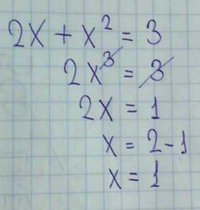 2x + x² = 3
2x³ = 3
2x = 1
x = 2-1
x = 1